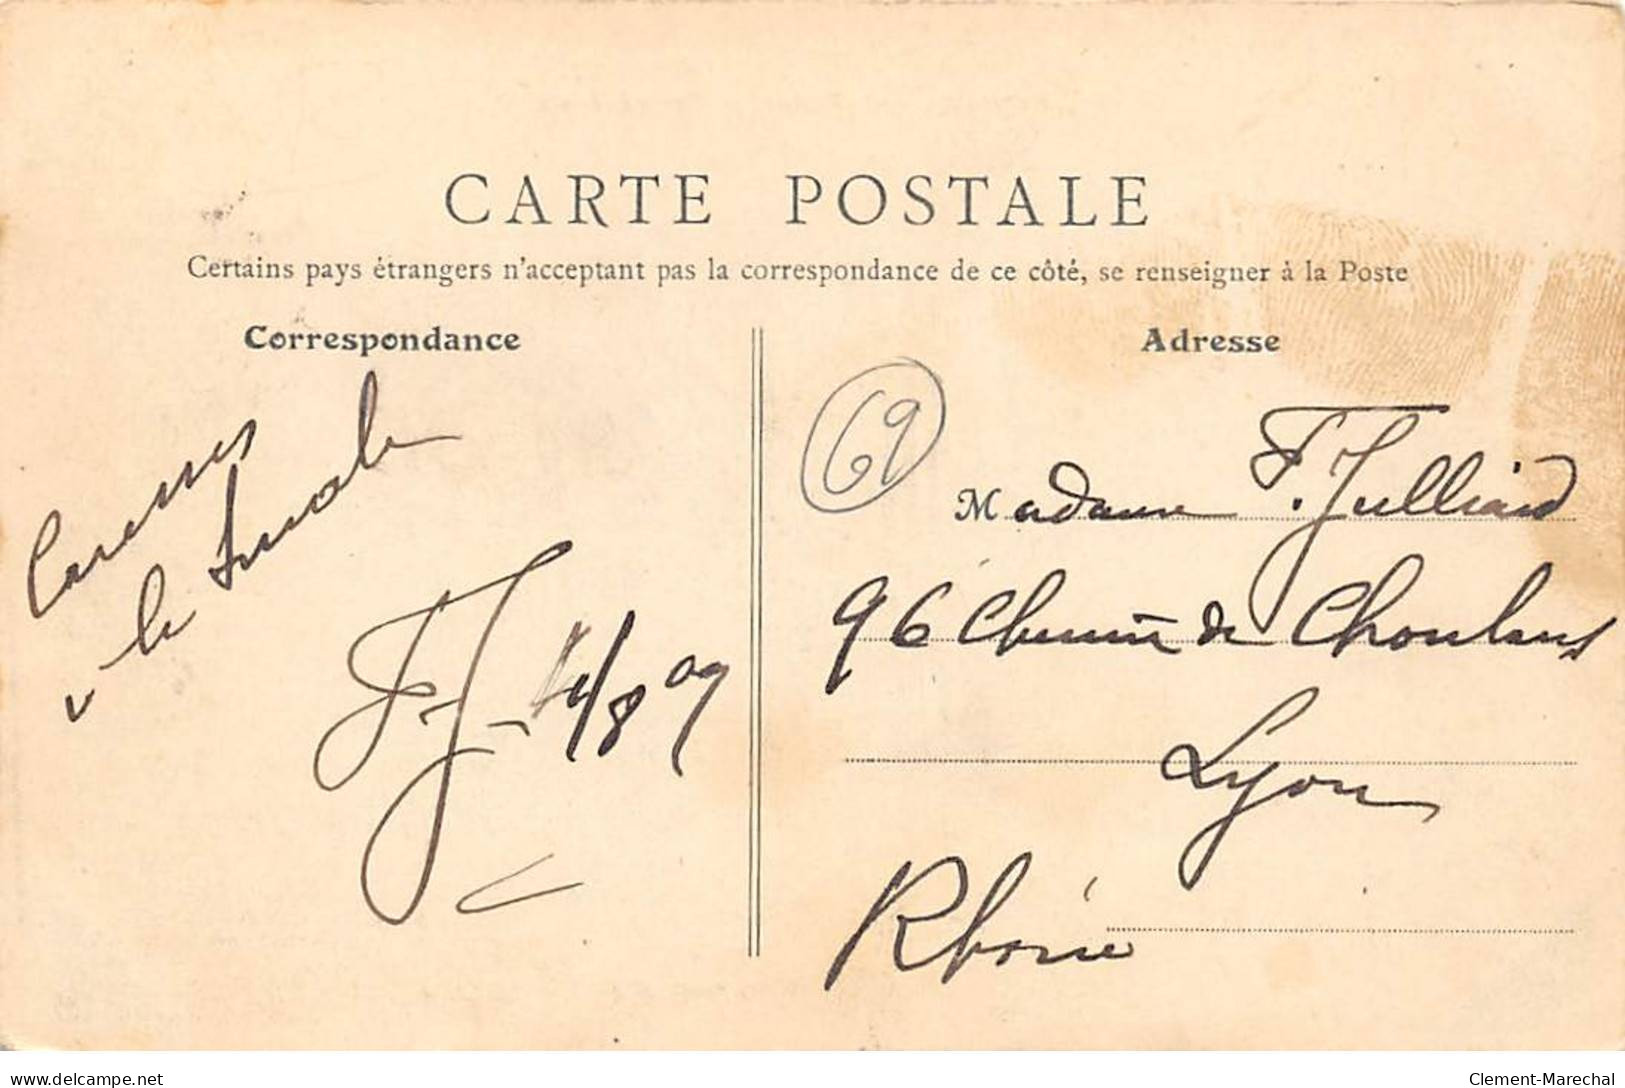 CARTE POSTALE
Certains pays étrangers n'acceptant pas la correspondance de ce côté, se renseigner à la Poste
Correspondance
Adresse
69
Caresses
F. J. 4/8 09
Madame F. Julliard
96 Chemin de Choulans
Lyon
Rhône
delcampe.net
Clement-Marechal